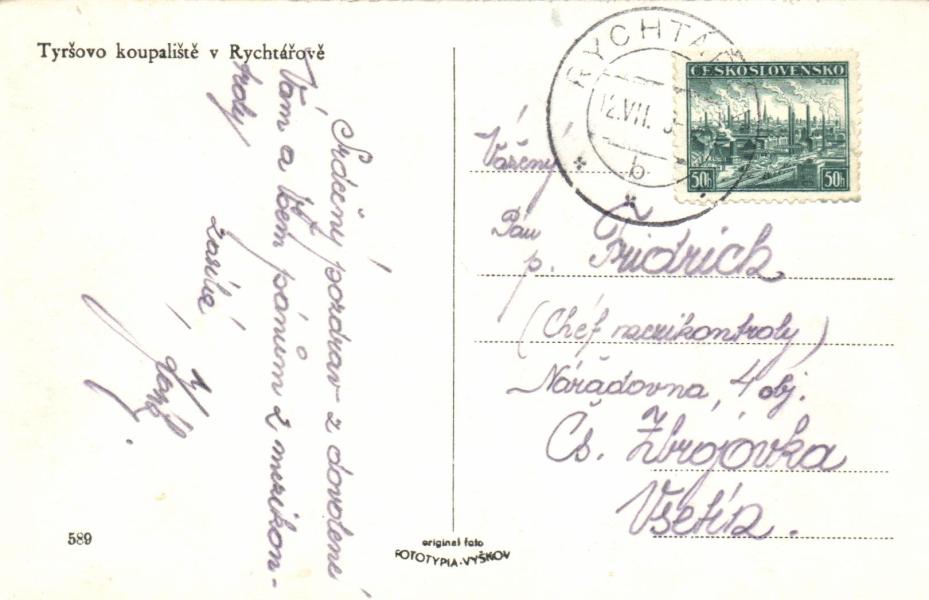 Tyršovo koupaliště v Rychtářově
Srdečný pozdrav z dovolené
Vám a všem pánům z mezikon-
troly
zasílá
589
original foto
FOTOTYPIA-VYŠKOV
RYCHTÁ
12.VII.
b
ČESKOSLOVENSKO
PLZEŇ
50h 50h
Vážený
Pán
p. Fridrich
(Chéf mezikontroly)
Nářaďovna, 4 obj.
Čs. Zbrojovka
Vsetín.